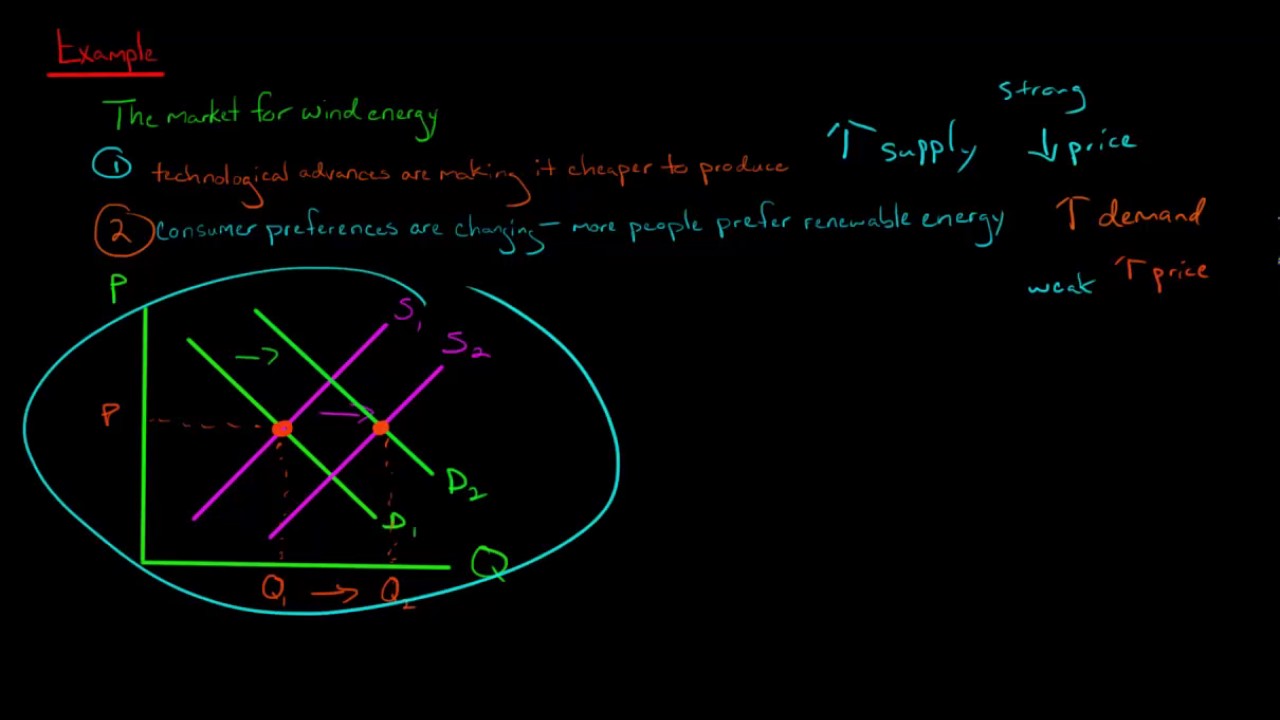 Example
The market for wind energy
strong
① technological advances are making it cheaper to produce ↑ supply ↓ price
② Consumer preferences are changing - more people prefer renewable energy ↑ demand
weak ↑ price
P
S₁
S₂
P
D₂
D₁
Q
Q₁ → Q₂